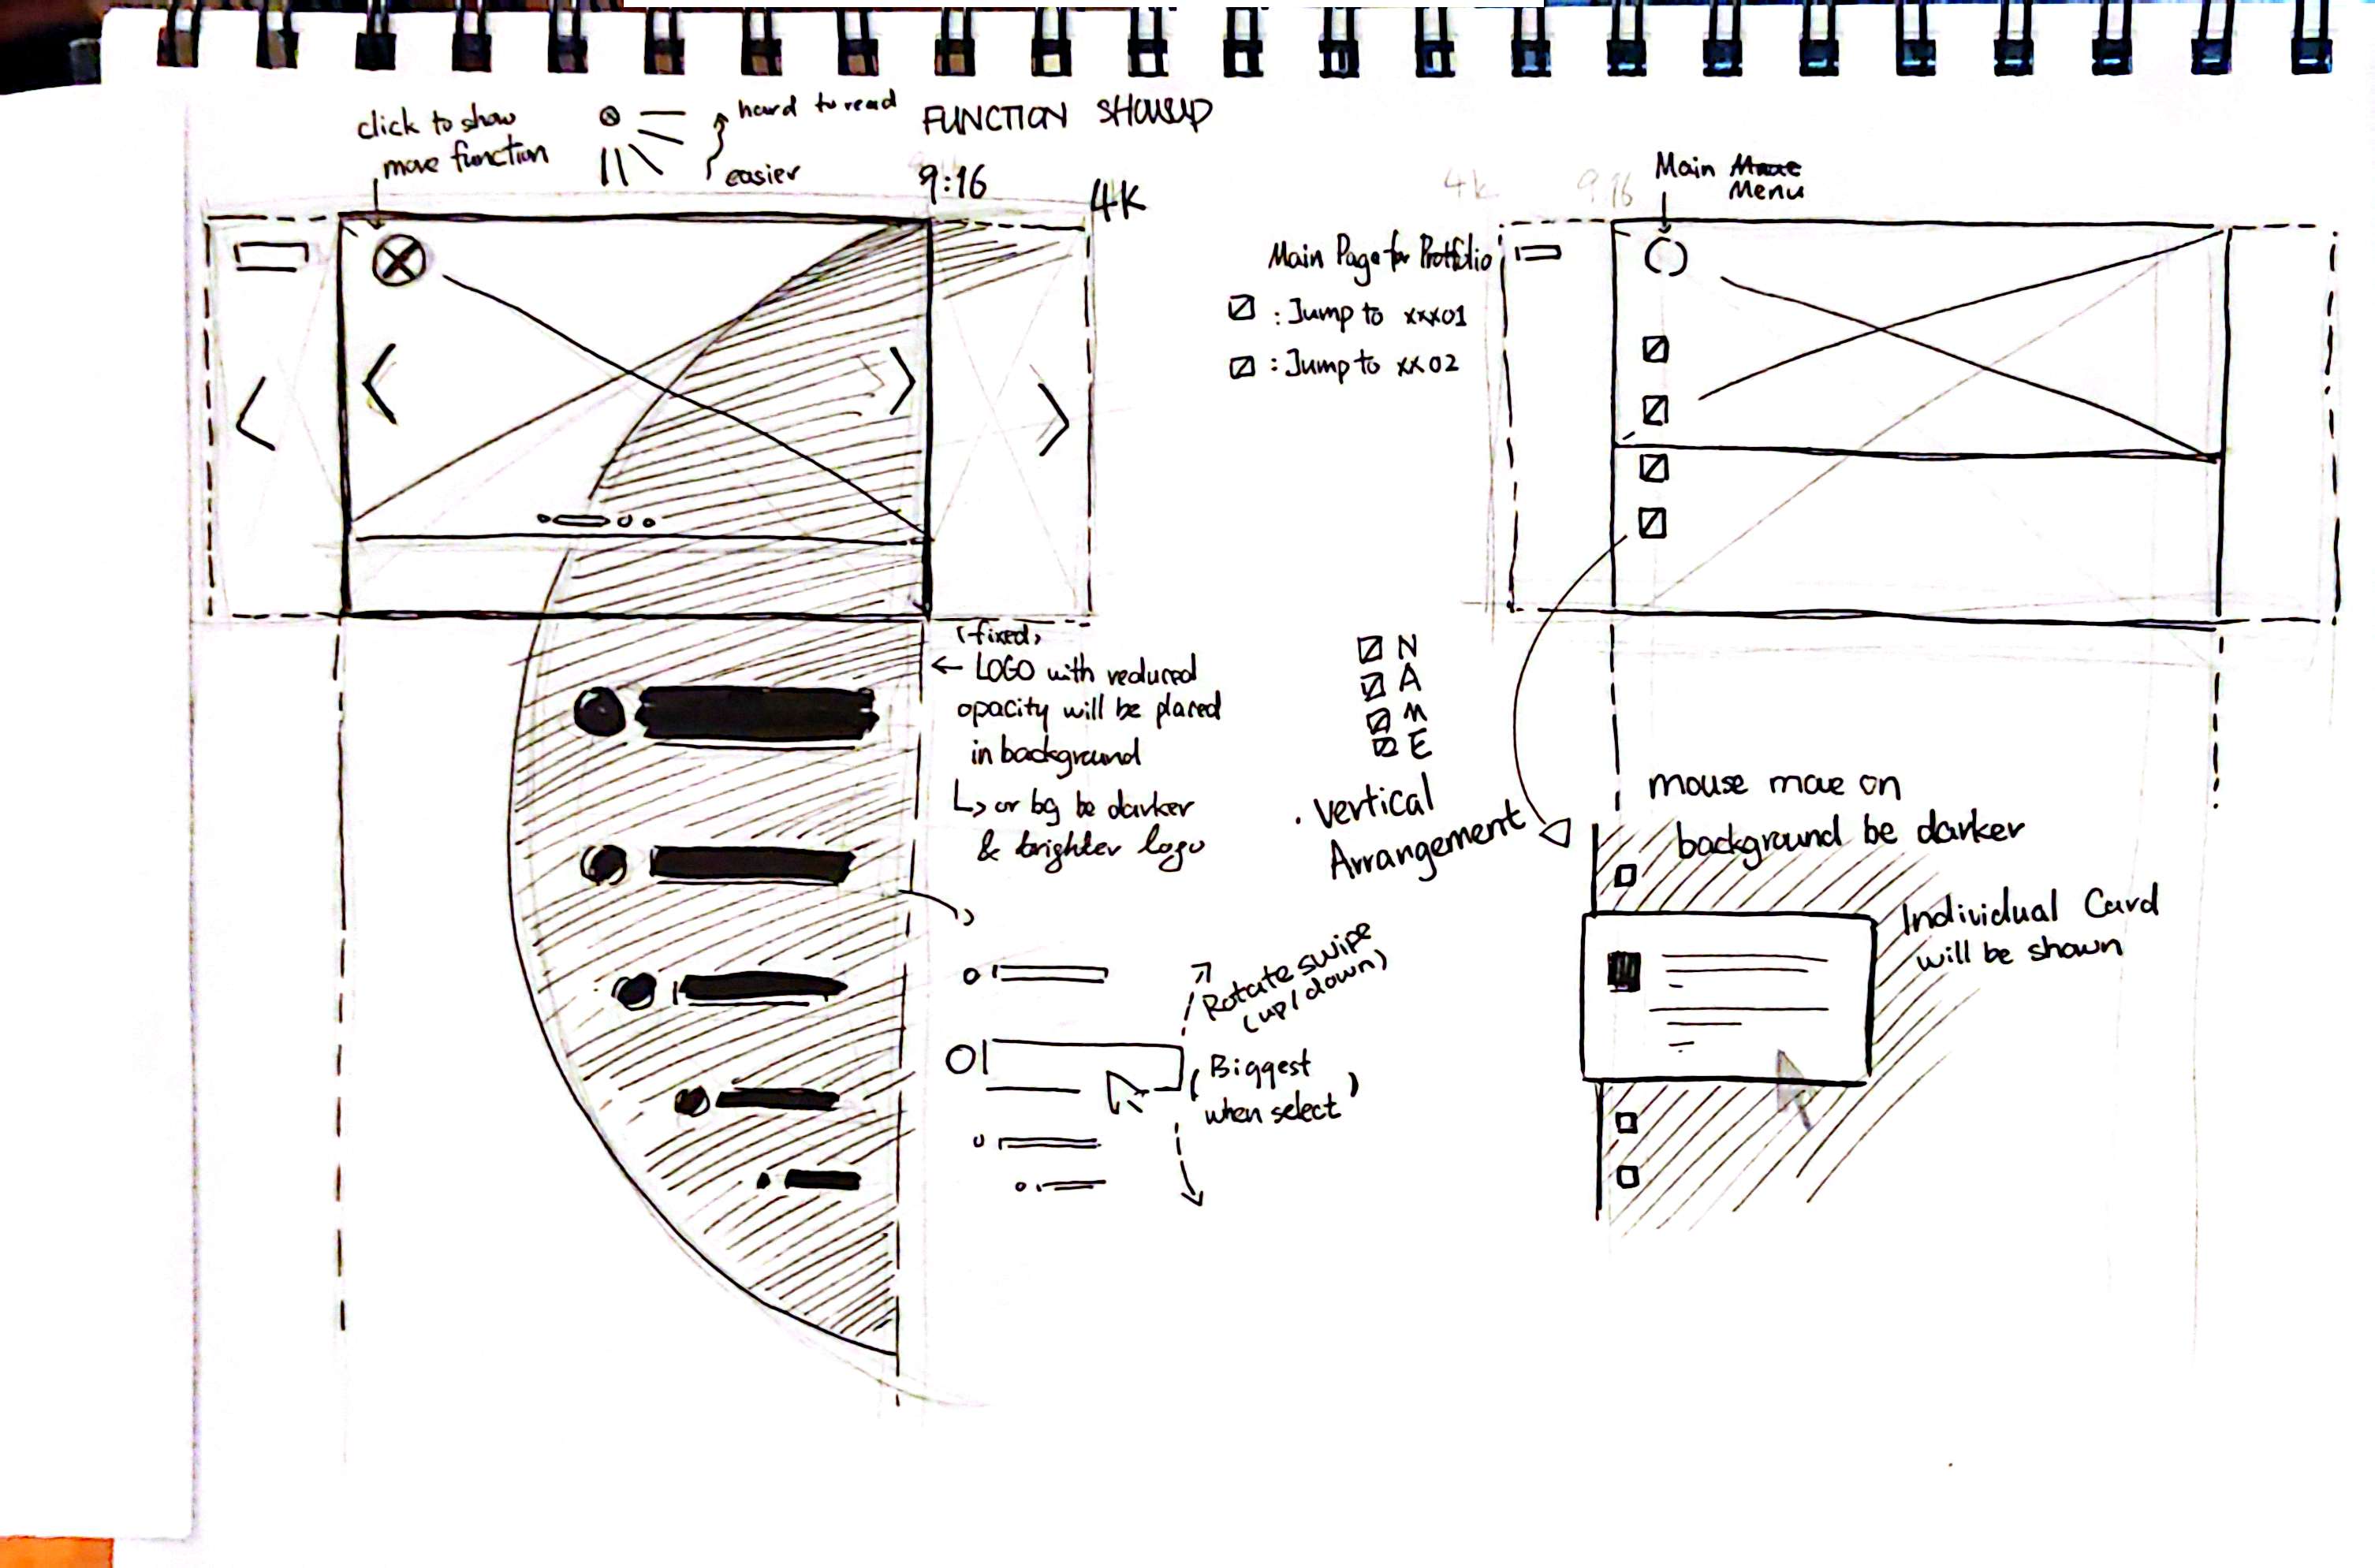 click to show
move function
hard to read
easier
FUNCTION SHOWUP
9:16
4K
(fixed)
← LOGO with reduced
opacity will be placed
in background
↳ or bg be darker
& brighter logo
Rotate swipe
(up/down)
(Biggest
when select)
4k
9 16
Main
Menu
Main Page for Protfolio
: Jump to xxx01
: Jump to xx02
N
A
M
E
. Vertical
Arrangement
mouse move on
background be darker
Individual Card
will be shown